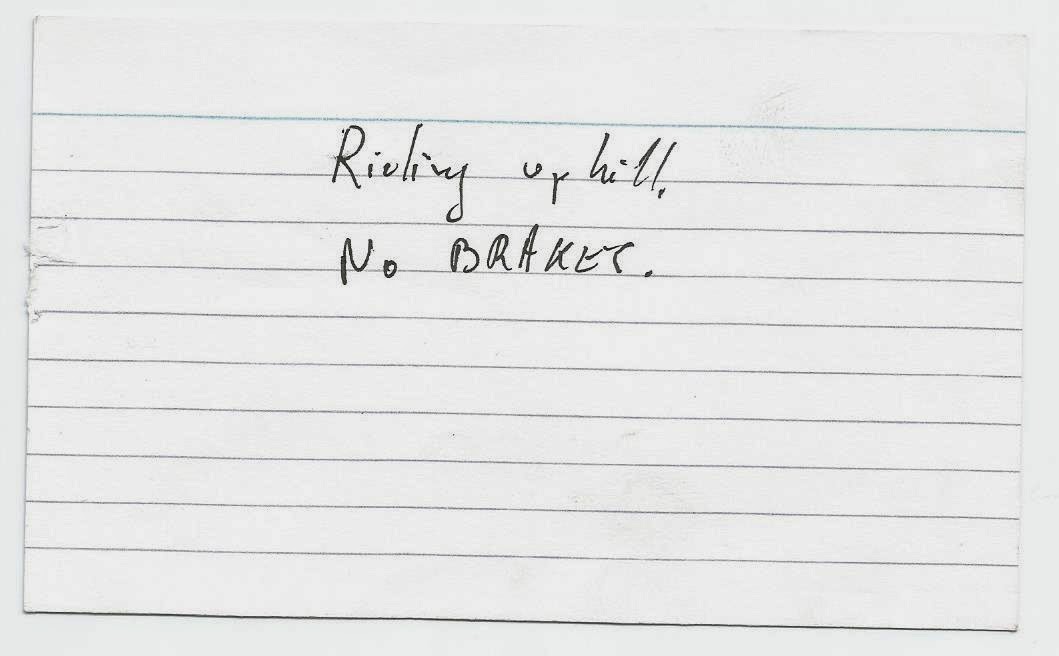 Riding up hill.
No BRAKES.